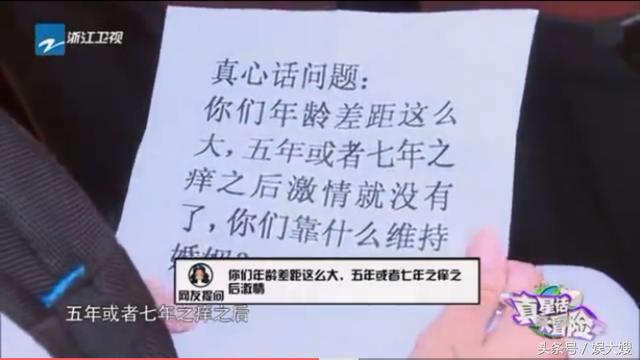 浙江卫视
真心话问题：
你们年龄差距这么
大，五年或者七年之
痒之后激情就没有
了，你们靠什么维持
婚姻？
网友提问
你们年龄差距这么大，五年或者七年之痒之
后激情
五年或者七年之痒之后
真星话
大冒险
头条号／娱大嫂